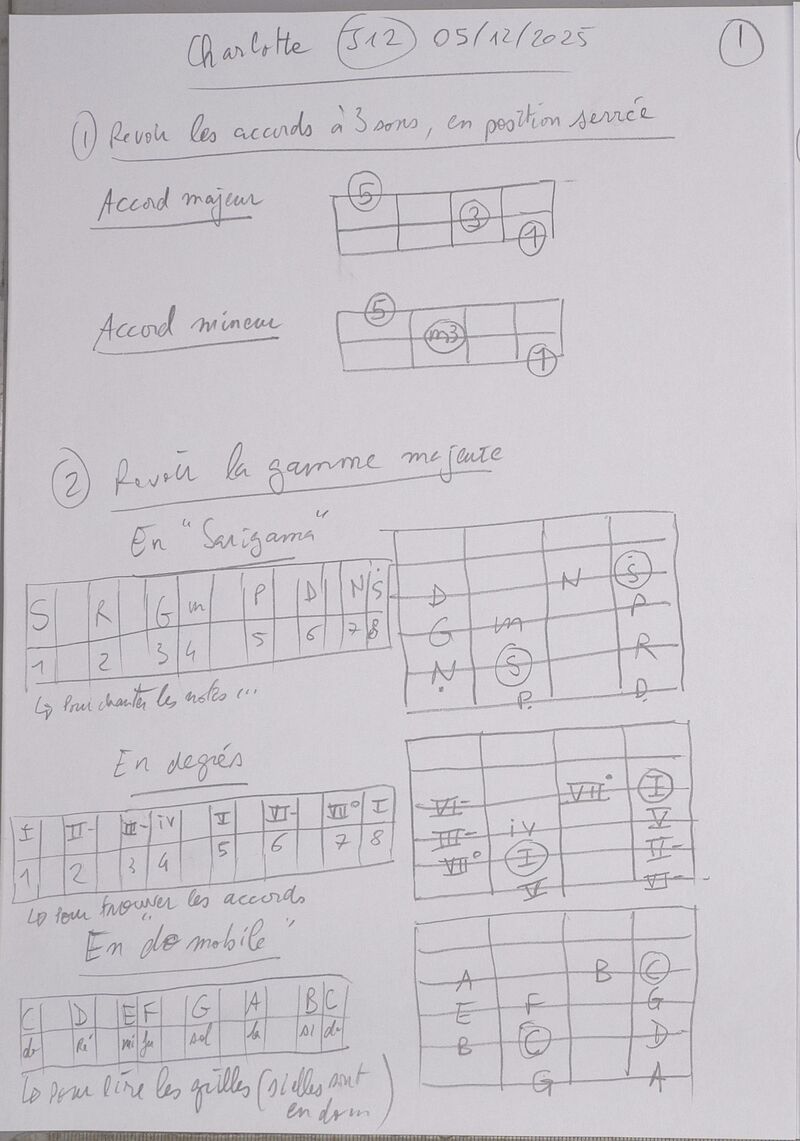 Charlotte S12 05/12/2025
1
1 Revoir les accords à 3 sons, en position serrée
Accord majeur
5
3
1
Accord mineur
5
m3
1
2 Revoir la gamme majeure
En "Sarigama"
S R G m P D N Ṡ
1 2 3 4 5 6 7 8
↳ Pour chanter les notes ...
N Ṡ
D P
G m R
Ṇ S
P. D.
En degrés
I II- III- iv V VI- VII° I
1 2 3 4 5 6 7 8
↳ Pour trouver les accords
VII° I
VI- V
III- iv II-
VII° I
V VI-
En "do mobile"
C D E F G A B C
do Ré mi fa sol la si do
↳ Pour lire les grilles (si elles sont
en dom)
A B C
E F G
B C D
G A